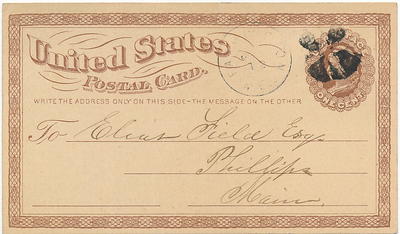 United States
POSTAL CARD.
WRITE THE ADDRESS ONLY ON THIS SIDE-THE MESSAGE ON THE OTHER
ONE CENT
To Elias Field Esq.
Phillips
Main